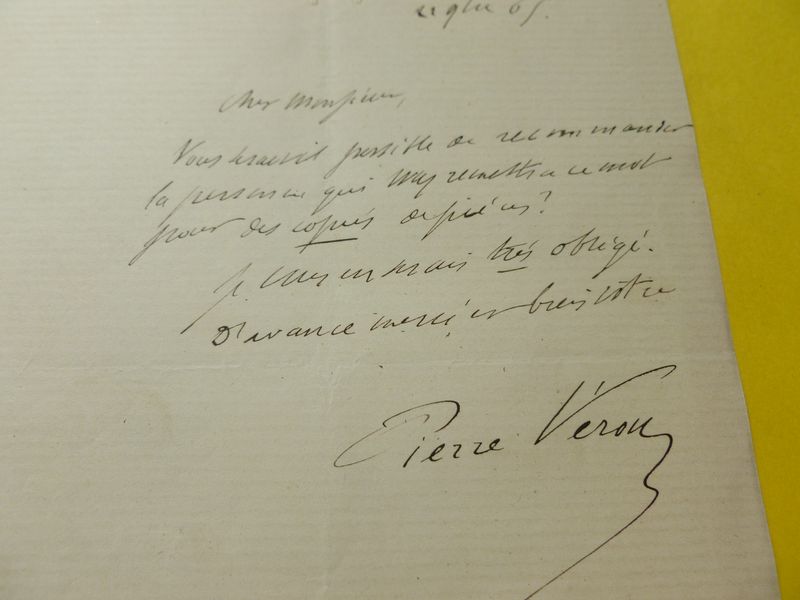 65.
Cher Monsieur,
Vous serait il possible de recommander
la personne qui vous remettra ce mot
pour des copies de pièces?
Je vous en serais très obligé.
D'avance merci et bien votre
Pierre Véron